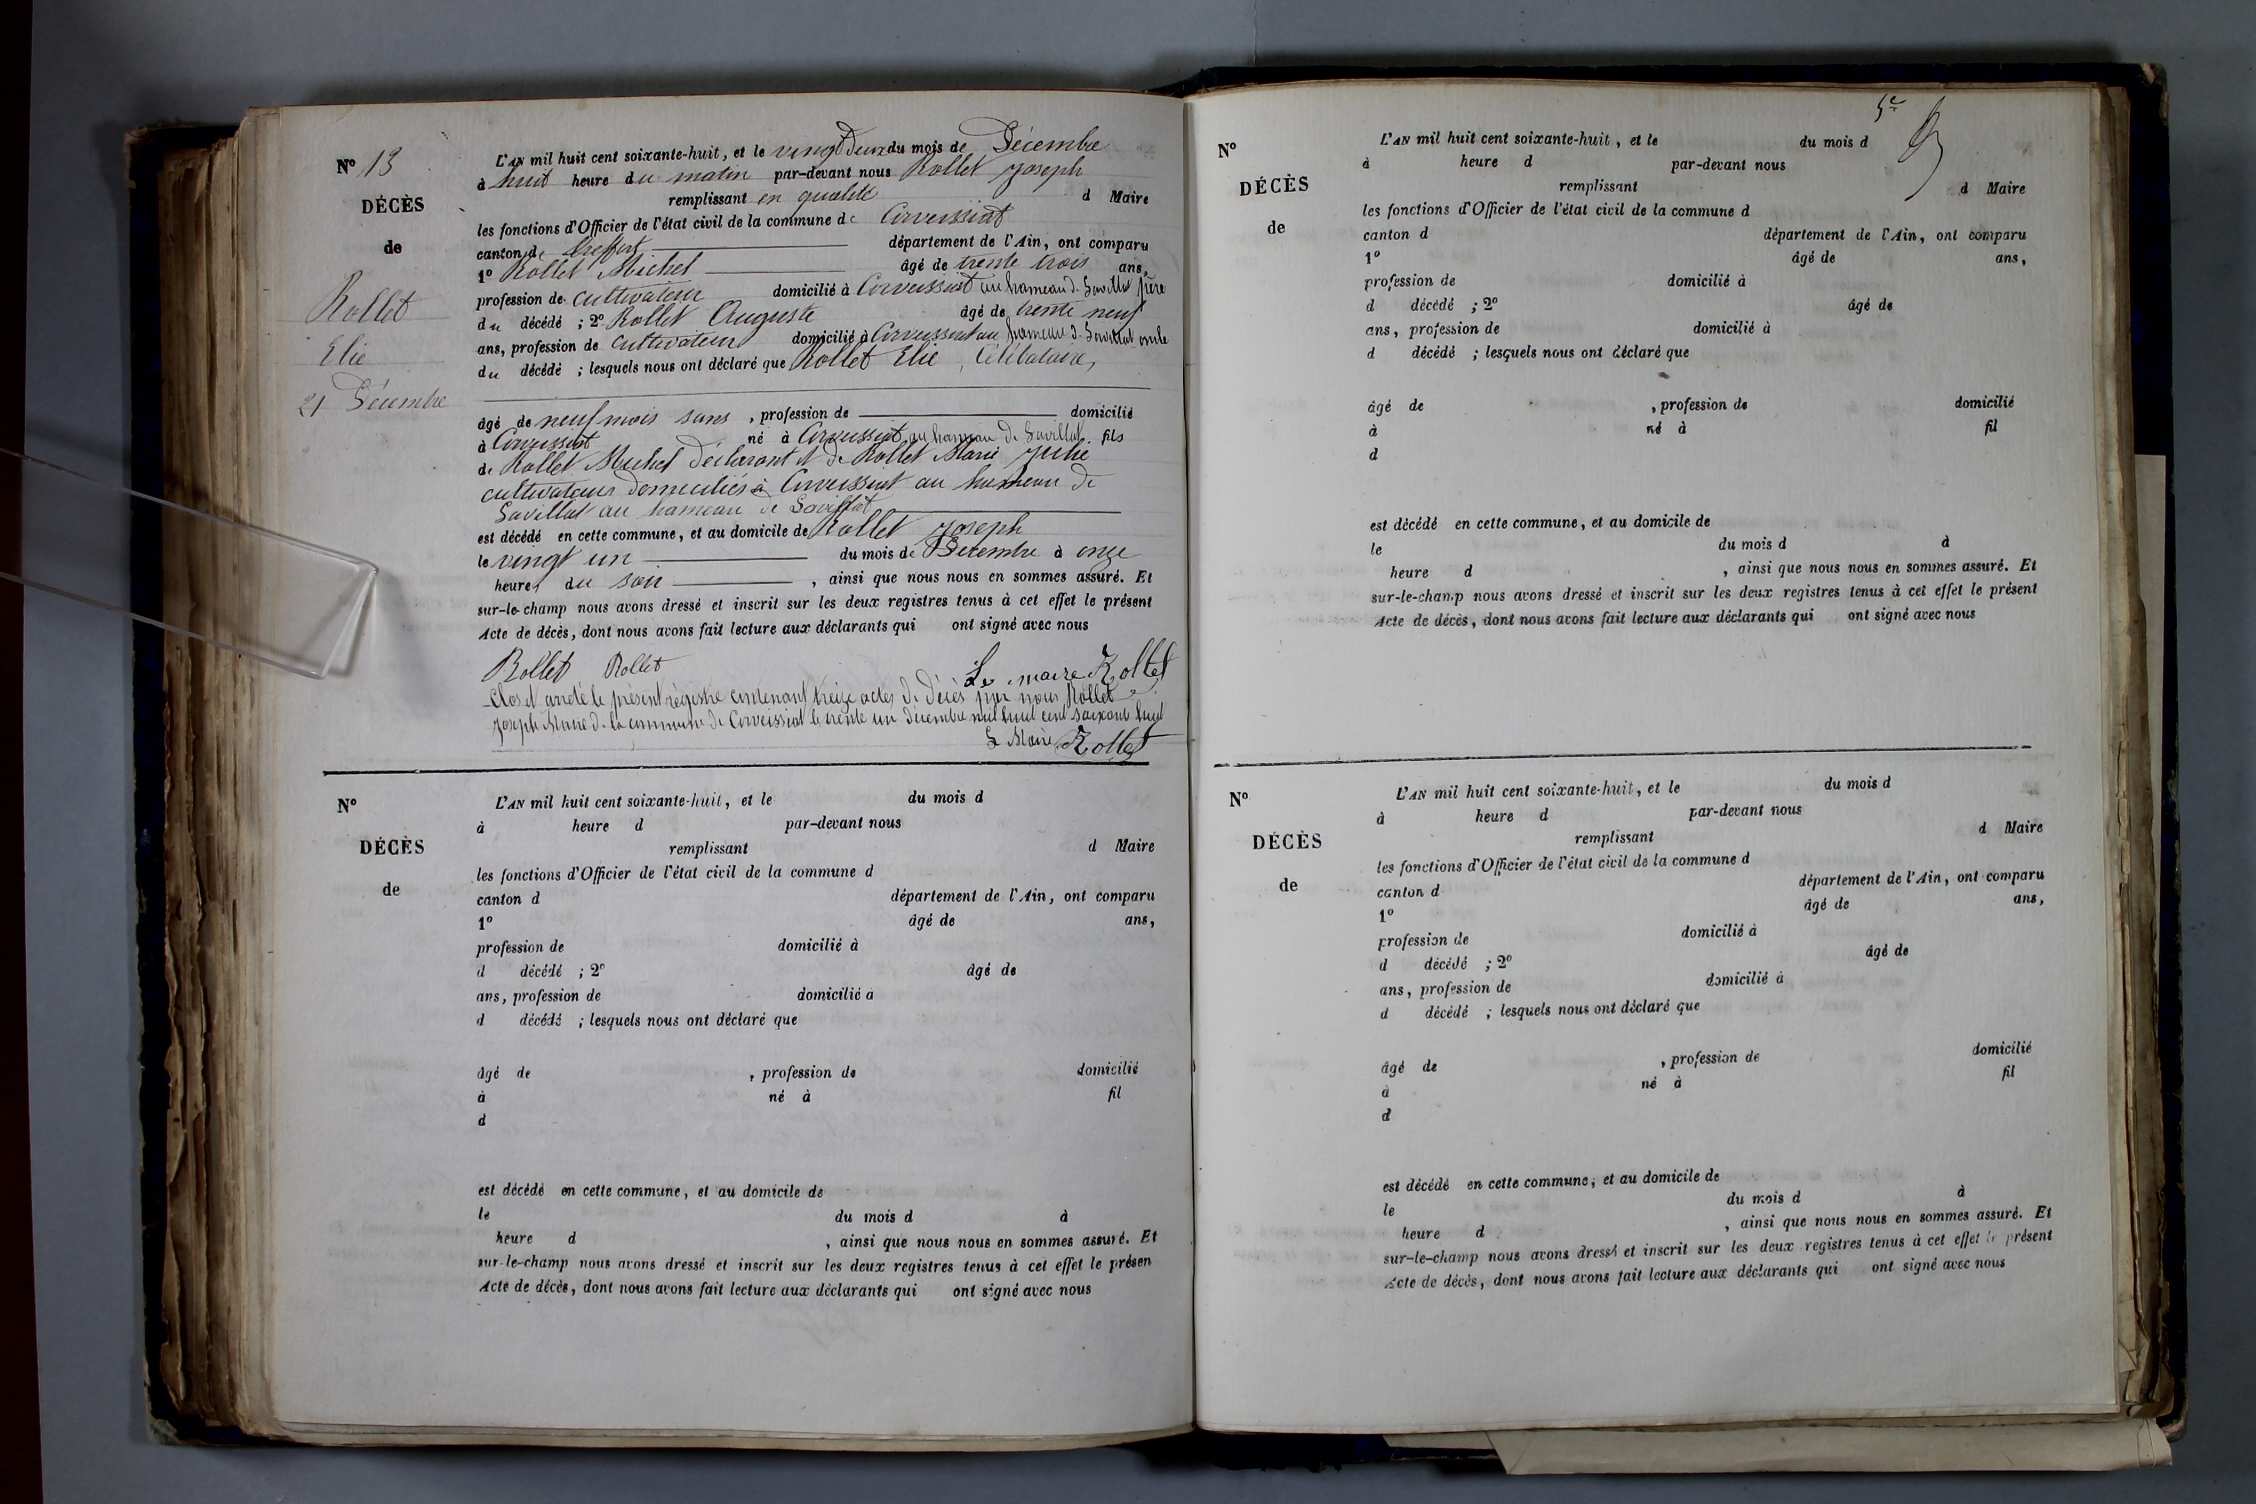 N° 13
DÉCÈS
de
Rollet
Elie
21 Décembre
L'AN mil huit cent soixante-huit, et le vingt deux du mois de Décembre
à huit heure du matin par-devant nous Rollet Joseph
remplissant en qualité d Maire
les fonctions d'Officier de l'état civil de la commune de Corveissiat
canton de Treffort département de l'Ain, ont comparu
1° Rollet Michel âgé de trente trois ans,
profession de cultivateur domicilié à Corveissiat au hameau de Sovillat père
du décédé ; 2° Rollet Auguste âgé de trente neuf
ans, profession de cultivateur domicilié à Corveissiat au hameau de Sovillat oncle
du décédé ; lesquels nous ont déclaré que Rollet Elie, Célibataire,
âgé de neuf mois sans , profession de domicilié
à Corveissiat né à Corveissiat au hameau de Sovillat fils
de Rollet Michel déclarant et de Rollet Marie Julie
cultivateurs domiciliés à Corveissiat au hameau de
Savillat au hameau de Sovillat
est décédé en cette commune, et au domicile de Rollet Joseph
le vingt un du mois de Décembre à onze
heures du soir , ainsi que nous nous en sommes assuré. Et
sur-le-champ nous avons dressé et inscrit sur les deux registres tenus à cet effet le présent
Acte de décès, dont nous avons fait lecture aux déclarants qui ont signé avec nous
Rollet Rollet Le maire Rollet
Clos et arrêté le présent registre contenant treize actes de décès par nous Rollet
Joseph Maire de la commune de Corveissiat le trente un décembre mil huit cent soixante huit
Le Maire Rollet
N°
DÉCÈS
de
L'AN mil huit cent soixante-huit, et le du mois d
à heure d par-devant nous
remplissant d Maire
les fonctions d'Officier de l'état civil de la commune d
canton d département de l'Ain, ont comparu
1° âgé de ans,
profession de domicilié à
d décédé ; 2° âgé de
ans, profession de domicilié à
d décédé ; lesquels nous ont déclaré que
âgé de , profession de domicilié
à né à fil
d
est décédé en cette commune, et au domicile de
le du mois d à
heure d , ainsi que nous nous en sommes assuré. Et
sur-le-champ nous avons dressé et inscrit sur les deux registres tenus à cet effet le présen
Acte de décès, dont nous avons fait lecture aux déclarants qui ont signé avec nous
5e
N°
DÉCÈS
de
L'AN mil huit cent soixante-huit, et le du mois d
à heure d par-devant nous
remplissant d Maire
les fonctions d'Officier de l'état civil de la commune d
canton d département de l'Ain, ont comparu
1° âgé de ans,
profession de domicilié à
d décédé ; 2° âgé de
ans, profession de domicilié à
d décédé ; lesquels nous ont déclaré que
âgé de , profession de domicilié
à né à fil
d
est décédé en cette commune, et au domicile de
le du mois d à
heure d , ainsi que nous nous en sommes assuré. Et
sur-le-champ nous avons dressé et inscrit sur les deux registres tenus à cet effet le présent
Acte de décès, dont nous avons fait lecture aux déclarants qui ont signé avec nous
N°
DÉCÈS
de
L'AN mil huit cent soixante-huit, et le du mois d
à heure d par-devant nous
remplissant d Maire
les fonctions d'Officier de l'état civil de la commune d
canton d département de l'Ain, ont comparu
1° âgé de ans,
profession de domicilié à
d décédé ; 2° âgé de
ans, profession de domicilié à
d décédé ; lesquels nous ont déclaré que
âgé de , profession de domicilié
à né à fil
d
est décédé en cette commune, et au domicile de
le du mois d à
heure d , ainsi que nous nous en sommes assuré. Et
sur-le-champ nous avons dressé et inscrit sur les deux registres tenus à cet effet le présent
Acte de décès, dont nous avons fait lecture aux déclarants qui ont signé avec nous